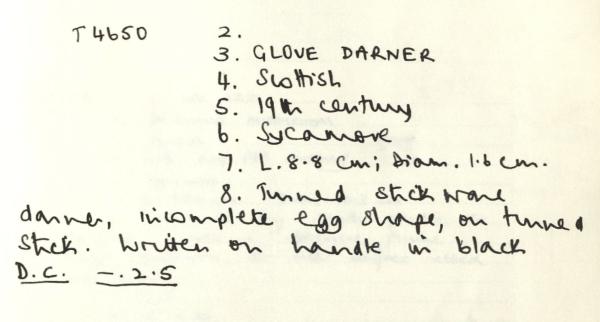 T4650 2.
3. GLOVE DARNER
4. Scottish
5. 19th century
6. Sycamore
7. L. 8.8 cm; Diam. 1.6 cm.
8. Turned stickware
darner, incomplete egg shape, on turned
stick. Written on handle in black
D.C. -.2.5